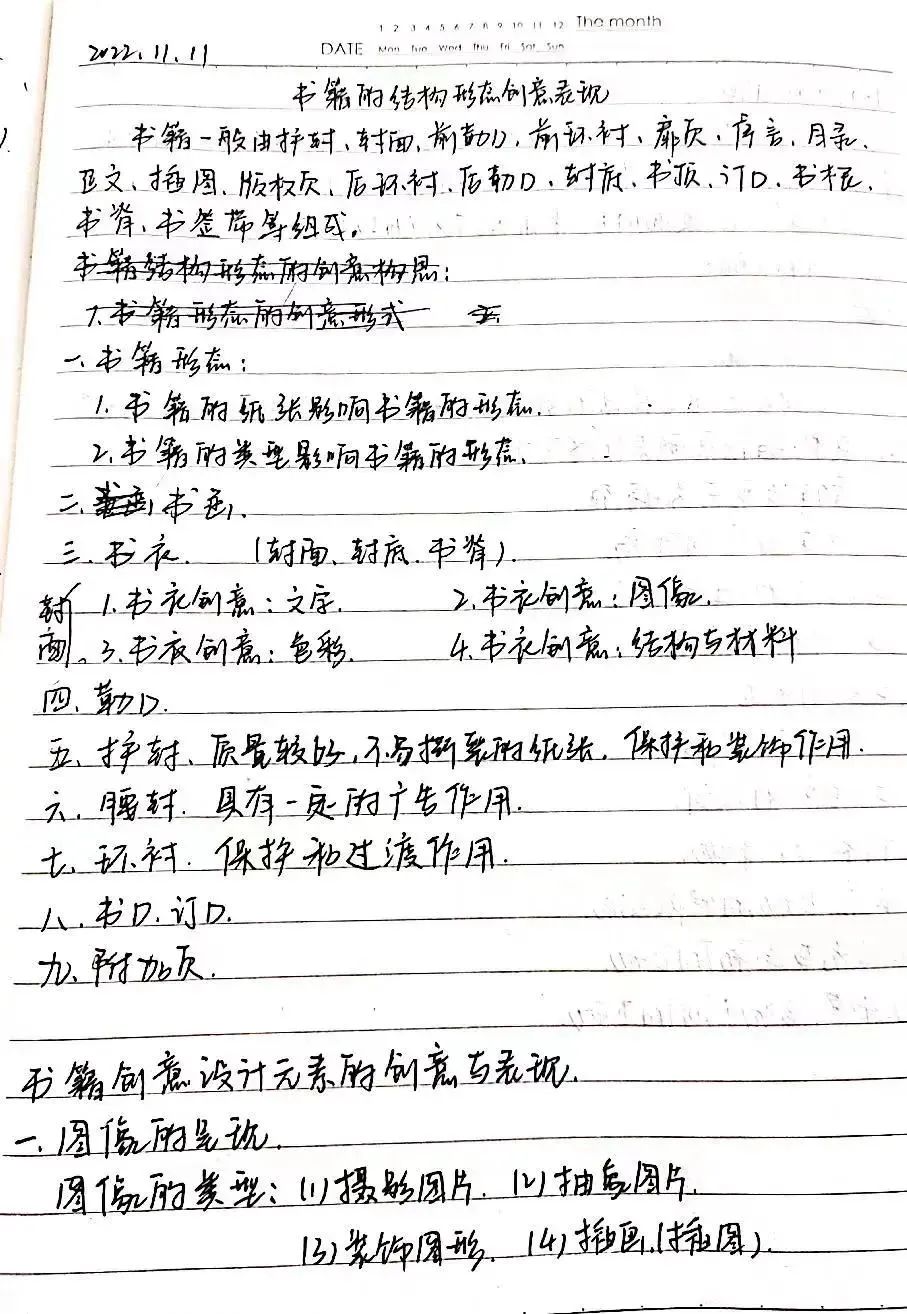 1 2 3 4 5 6 7 8 9 10 11 12 The month
2022.11.11 DATE Mon Tue Wed Thu Fri Sat Sun
书籍的结构形态创意表现
书籍一般由护封、封面、前勒口、前环衬、扉页、序言、目录、
正文、插图、版权页、后环衬、后勒口、封底、书顶、订口、书根、
书脊、书签带等组成。
书籍结构形态的创意构思:
1.书籍形态的创意形式
一、书籍形态:
1. 书籍的纸张影响书籍的形态.
2.书籍的类型影响书籍的形态.
二、书函.
三、书衣. (封面、封底、书脊).
封面 1.书衣创意:文字. 2.书衣创意:图像.
3.书衣创意:色彩. 4.书衣创意:结构与材料
四、勒口.
五、护封、质量较好,不易撕裂的纸张. 保护和装饰作用.
六、腰封. 具有一定的广告作用.
七、环衬. 保护和过渡作用.
八、书口.订口.
九、附加页.
书籍创意设计元素的创意与表现.
一、图像的呈现.
图像的类型:(1)摄影图片. (2)抽象图片.
(3)装饰图形. (4)插画.(插图).